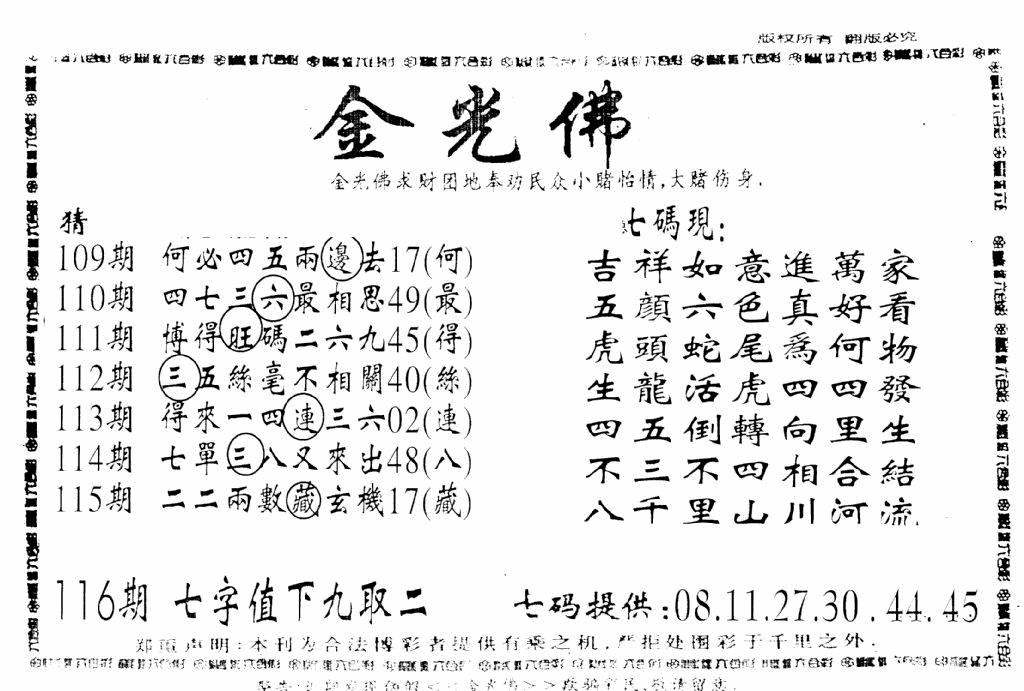 版权所有 翻版必究
金光佛
金光佛求财团地奉劝民众小赌怡情,大赌伤身.
猜
109期 何必四五兩邊去17(何)
110期 四七三六最相思49(最)
111期 博得旺碼二六九45(得)
112期 三五絲毫不相關40(絲)
113期 得來一四連三六02(連)
114期 七單三八又來出48(八)
115期 二二兩數藏玄機17(藏)
七碼現:
吉祥如意進萬家
五顏六色真好看
虎頭蛇尾爲何物
生龍活虎四四發
四五倒轉向里生
不三不四相合結
八千里山川河流.
116期 七字值下九取二
七码提供:08.11.27.30.44.45
郑重声明:本刊为合法博彩者提供有乘之机,严拒处图彩于千里之外.